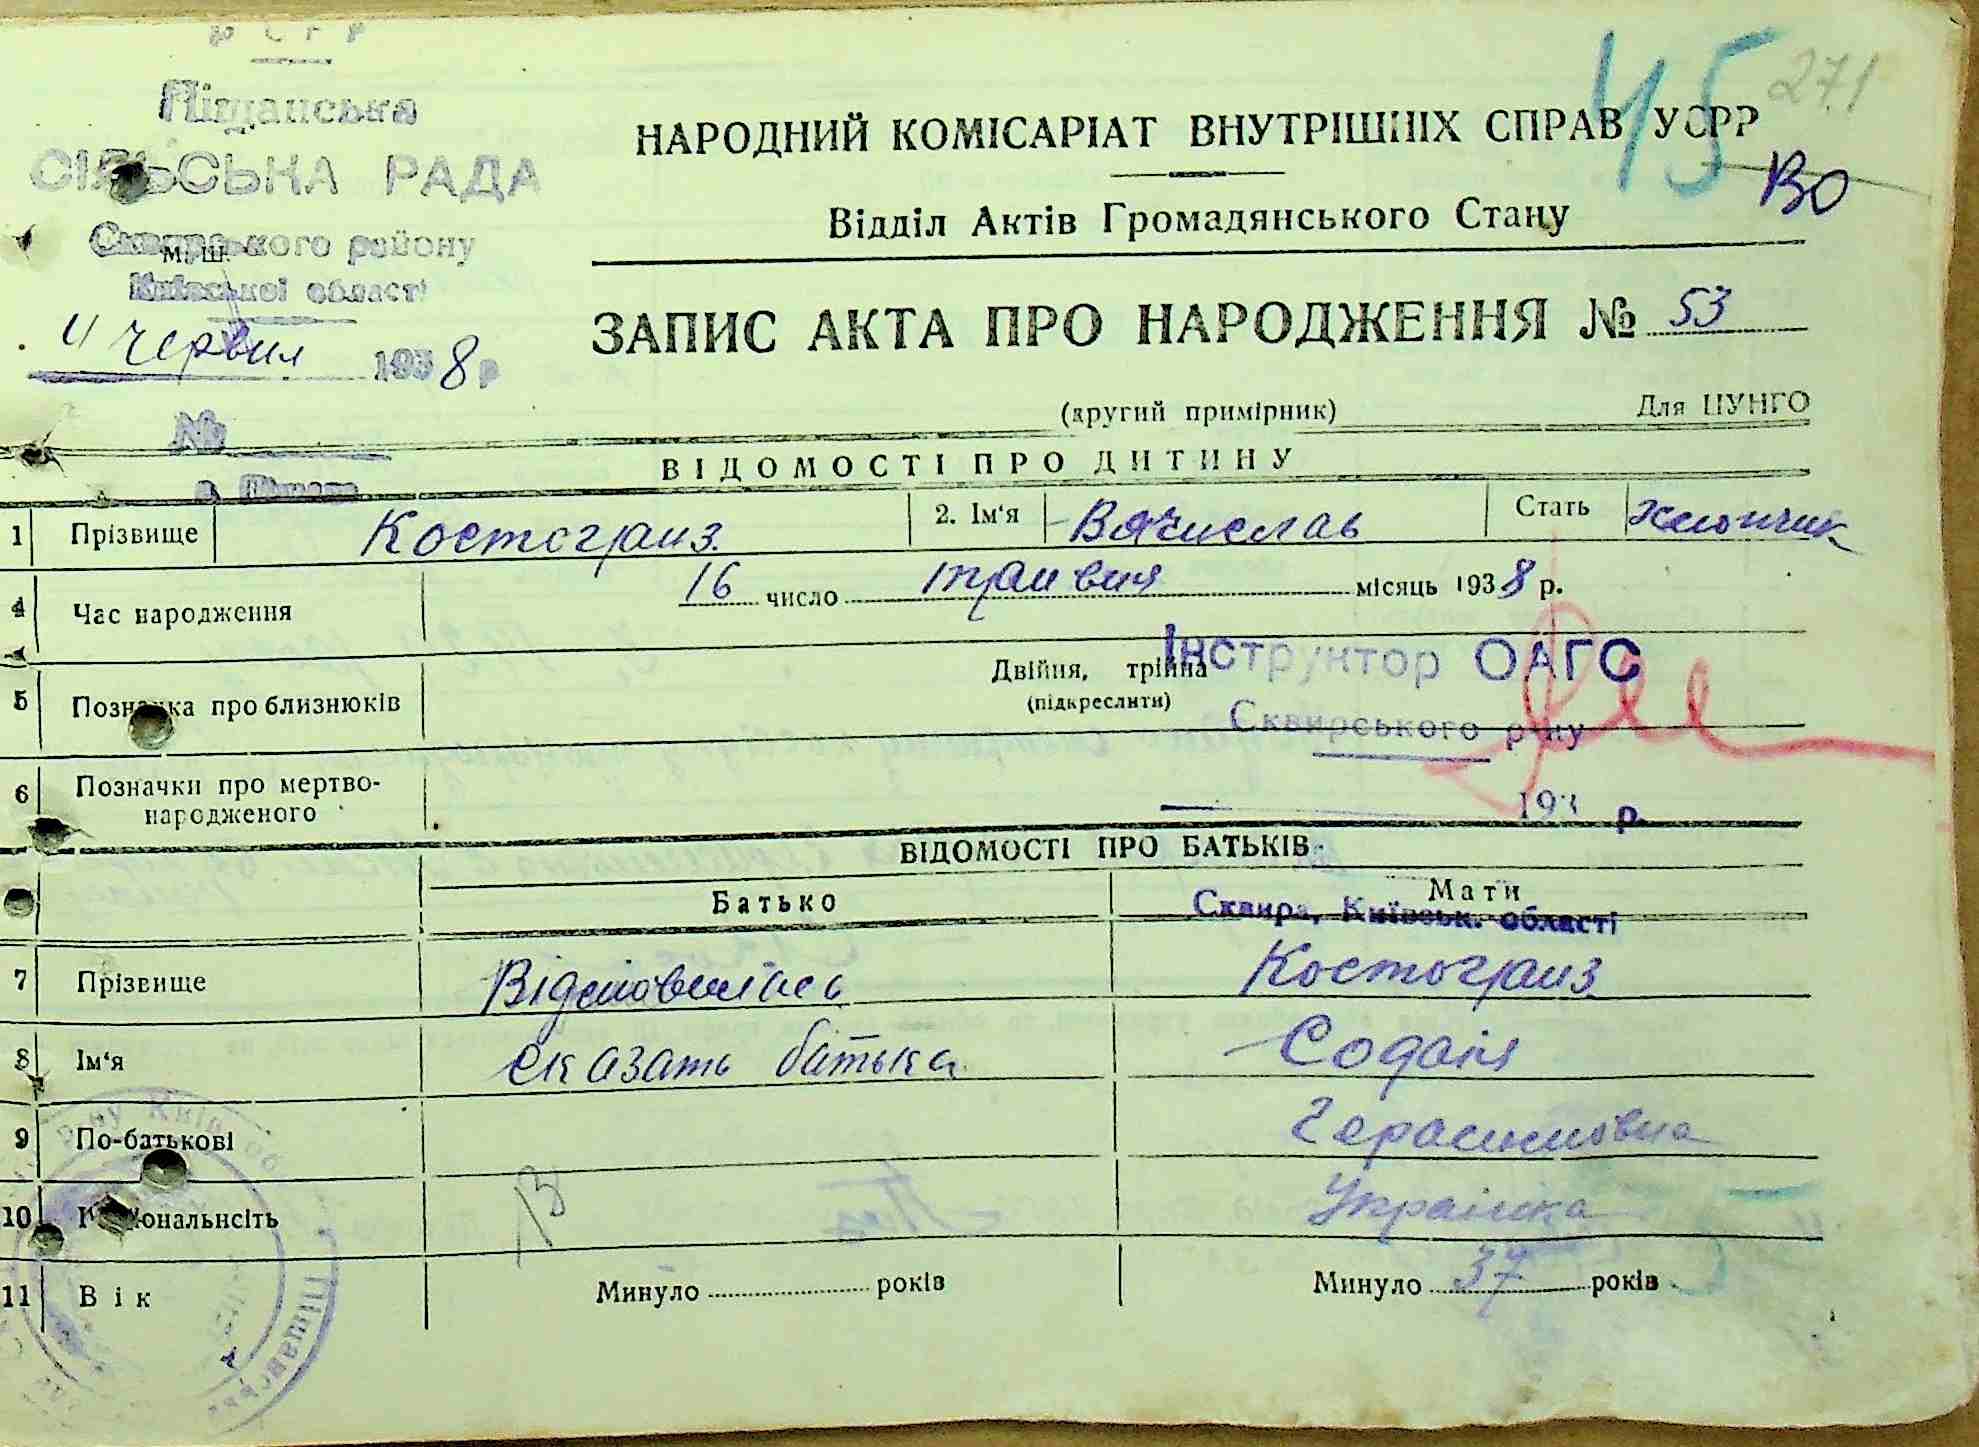 УСРР
Піщанська
СІЛЬСЬКА РАДА
Сквирського району
Київської області
М. Ш.
4 червня 1938 р
№
45
271
НАРОДНИЙ КОМІСАРІАТ ВНУТРІШНІХ СПРАВ УСРР
ВО
Відділ Актів Громадянського Стану
ЗАПИС АКТА ПРО НАРОДЖЕННЯ № 53
(другий примірник) Для ЦУНГО
ВІДОМОСТІ ПРО ДИТИНУ
1 Прізвище Костогриз 2. Ім‘я Вячислав Стать хлопчик
4 Час народження 16 число травня місяць 1938 р.
5 Позначка про близнюків Двійня, трійня
(підкреслити)
Інструктор ОАГС
Сквирського р-ну
193 р.
6 Позначки про мертво-
народженого
ВІДОМОСТІ ПРО БАТЬКІВ
Батько Мати
Сквира, Київськ. області
7 Прізвище Відмовилась Костогриз
8 Ім‘я сказать батька
9 По-батькові Герасимовна
10 Національнсіть Українка
11 Вік Минуло років Минуло 37 років